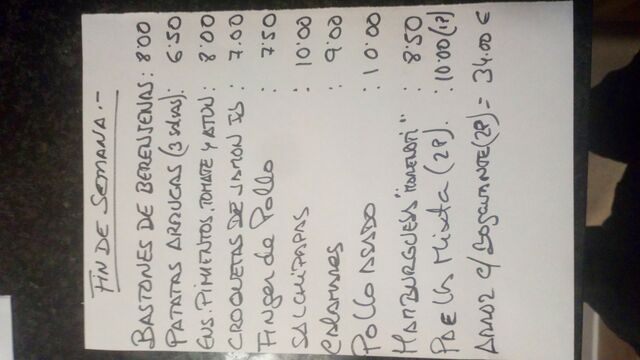 FIN DE SEMANA.-
BASTONES DE BERENJENAS: 8'00
PATATAS ARRUGAS (3 salsas): 6'50
ENS. PIMIENTOS, TOMATE Y ATUN: 8'00
CROQUETAS DE JAMON IB : 7.00
Finger de Pollo : 7'50
SALCHIPAPAS : 10'00
Calamares : 9'00
Pollo ASADO : 10'00
HAMBURGUESA : 8'50
PAElla Mixta (2P). : 10'00 (1P)
ARROZ c/ Bogavante (2P) = 34.00 €